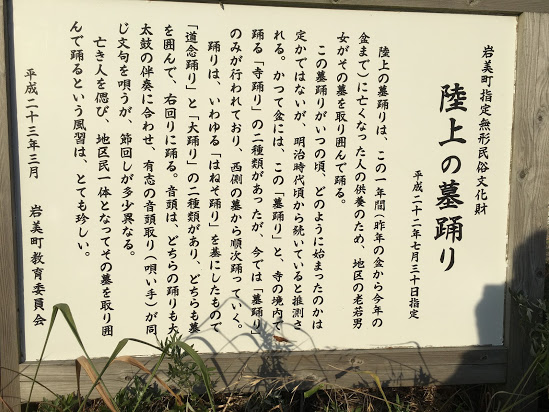 岩美町指定無形民俗文化財
陸上の墓踊り
平成二十二年七月三十日指定
陸上の墓踊りは、この一年間（昨年の盆から今年の
盆まで）に亡くなった人の供養のため、地区の老若男
女がその墓を取り囲んで踊る。
この墓踊りがいつの頃、どのように始まったのかは
定かではないが、明治時代頃から続いていると推測さ
れる。かつて盆には、この「墓踊り」と、寺の境内で
踊る「寺踊り」の二種類があったが、今では「墓踊り」
のみが行われており、西側の墓から順次踊っていく。
踊りは、いわゆる「はねそ踊り」を基にしたもので
「道念踊り」と「大踊り」の二種類があり、どちらも墓
を囲んで、右回りに踊る。音頭は、どちらの踊りも大
太鼓の伴奏に合わせ、有志の音頭取り（唄い手）が同
じ文句を唄うが、節回しが多少異なる。
亡き人を偲び、地区民一体となってその墓を取り囲
んで踊るという風習は、とても珍しい。
平成二十三年三月　岩美町教育委員会